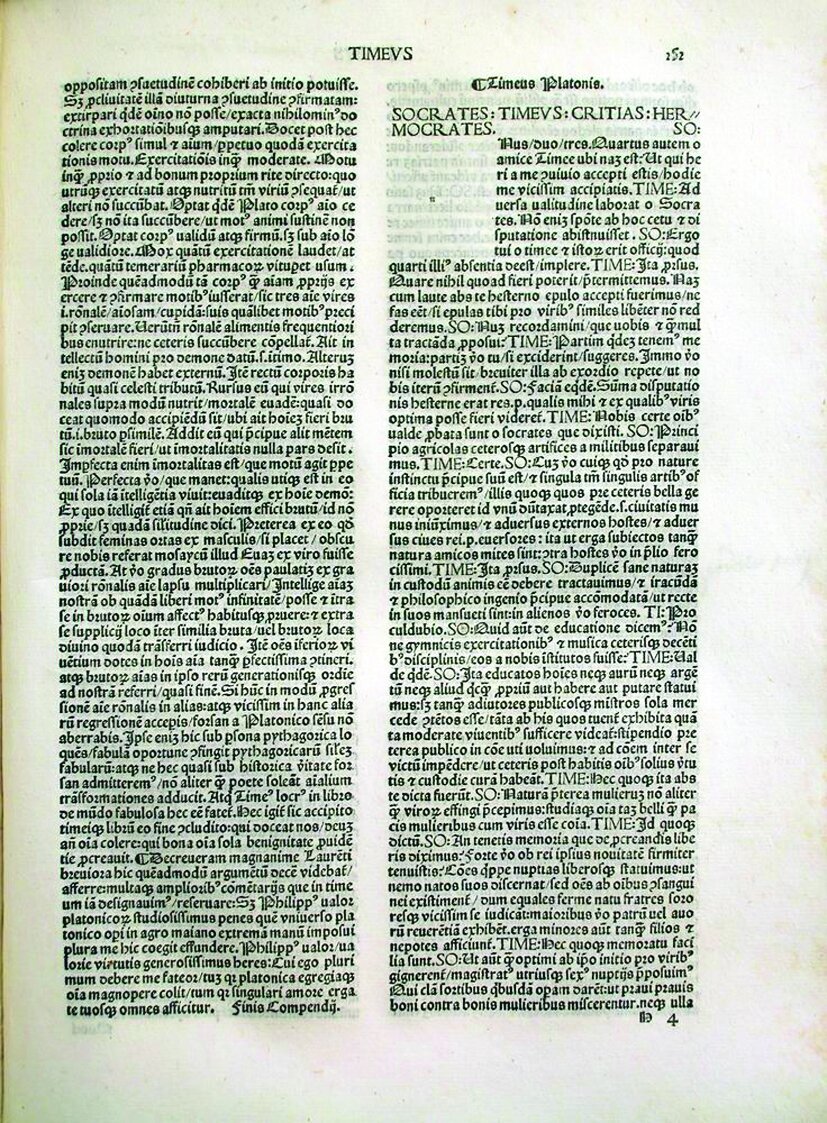 TIMEVS
252
oppositam ꝯsuetudinē cohiberi ab initio potuisse.
Sꝫ ꝓcliuitatē illā diuturna ꝯsuetudine ꝯfirmatam:
extirpari qdē oīno nō posse/exacta nihilominꝰ do
ctrina exhortatiōibusqꝫ amputari. Docet post hec
colere corpꝰ simul ⁊ aīum/ꝑpetuo quodā exercita
tionis motu. Exercitatiōis inqꝫ moderate. Motu
inqꝫ ꝓprio ⁊ ad bonum proprium rite directo: quo
utrūqꝫ exercitatū atqꝫ nutritū tm̄ viriū ꝯsequat̄/ut
alteri nō succūbat. Optat qdē Plato corpꝰ aīo ce
dere/sꝫ nō ita succūbere/ut motꝰ animi sustinē non
possit. Optat corpꝰ validū atqꝫ firmū. sꝫ sub aīo lō
ge validiore. Mox quātū exercitationē laudet/at
tēde. quātū temerariū pharmacoꝝ vitupet usum.
Proinde quēadmodū tā corpꝰ qꝫ aīam ꝓprijs ex
ercere ⁊ ꝯfirmare motibꝰ iusserat/sic tres aīe vires
i. rōnalē/aīosam/cupidā: suis quālibet motibꝰ preci
pit ꝯseruare. Uerūtn̄ rōnalē alimentis frequentiori
bus enutrire: ne ceteris succūbere cōpellat̄. Ait in
tellectū homini pro demone datū. s. itimo. Alterūꝫ
enīꝫ demonē habet externū. Itē rectū corporis ha
bitū quasi celesti tributū. Rursus eū qui vires irrō
nales supra modū nutrit/mortalē euadē: quasi do
ceat quomodo accipiēdū sit/ubi ait hoīeꝫ fieri bru
tū. i. bruto ꝑsimilē. Addit eū qui p̄cipue alit mētem
sic immortalē fieri/ut immortalitatis nulla pars desit.
Imꝑfecta enim immortalitas est/que motū agit ꝑpe
tuū. Perfecta v̄o/que manet: qualis utiqꝫ est in eo
qui sola iā itelligētia viuit: euaditqꝫ ex hoīe demō:
Ex quo itelligit̄ etiā qn̄ ait hoīem effici brutū/id nō
ꝓprie/sꝫ quadā silitudine dici. Preterea ex eo qd̄
subdit feminas ortas ex masculis/si placet/obscu
re nobis referat mosaycū illud Euaꝫ ex viro fuisse
ꝓductā. At v̄o gradus brutoꝝ oēs paulati ex gra
uiori rōnalis aīe lapsu multiplicari/Intellige aīaꝫ
nostrā ob quādā liberi motꝰ infinitatē/posse ⁊ itra
se in brutoꝝ oīum affectꝰ habitusqꝫ ꝓruere: ⁊ extra
se supplicij loco iter similia bruta/uel brutoꝝ loca
diuino quodā trāsferri iudicio. Itē oēs iferioꝝ vi
uētium dotes in hoīs aīa tanqꝫ ꝑfectissima ꝯtineri.
atqꝫ brutoꝝ aīas in ipso rerū generationisqꝫ ordīe
ad nostrā referri/quasi finē. Si hūc in modū ꝓgres
sionē aīe rōnalis in alias: atqꝫ vicissim in hanc alia
rū regressionē accepis/forsan a Platonico sēsu nō
aberrabis. Ipse enīꝫ hic sub ꝑsona pythagorica lo
quēs/fabulā oportune ꝯfingit pythagoricarū silēꝫ
fabularū: atqꝫ ne hec quasi sub historica v̄itate for
san admitterem̄/nō aliter qꝫ poete soleāt aīalium
trāsformationes adducit. Atqꝫ Timeꝰ locrꝰ in libro
de mūdo fabulosa hec eē fatet̄. Hec igit̄ sic accipito
timeiqꝫ librū eo fine ꝯcludito: qui doceat nos/deuꝫ
an̄ oīa colere: qui bona oīa sola benignitate ꝓuidē
tie ꝓcreauit. ¶Decreueram magnanime Laurēti
breuiora hic quēadmodū argumētū decē videbat̄/
afferre: multaqꝫ ampliorībꝰ cōmētarijs que in time
um iā designauimꝰ/reseruare: Sꝫ Philippꝰ valor
platonicoꝝ studiosissimus penes quē vniuerso pla
tonico opi in agro maiano extremā manū imposui
plura me hic coegit effundere. Philippꝰ valor/ua
lorie virtutis generosissimus heres: Cui ego pluri
mum debere me fateor/tuꝫ qꝛ platonica egregiaqꝫ
oīa magnopere colit/tum qꝛ singulari amore erga
te tuosqꝫ omnes afficitur. Finis Compendij.
¶Timeus Platonis.
SOCRATES: TIMEVS: CRITIAS: HER//
MOCRATES. SO:
Nus/duo/tres. Quartus autem o
amice Timee ubi naꝫ est: Ut qui he
ri a me ꝯuiuio accepti estis/hodie
me vicissim accipiatis. TIME: Ad
uersa ualitudine laborat o Socra
tes. Nō enīꝫ spōte ab hoc cetu ⁊ di
sputatione abstinuisset. SO: Ergo
tui o timee ⁊ istoꝝ erit officij: quod
quarti illiꝰ absentia deest/implere. TIME: Ita ꝓrsus.
Quare nihil quoad fieri poterit/p̄termittemus. Naꝫ
cum laute abs te hesterno epulo accepti fuerimus/ne
fas eēt/si epulas tibi pro viribꝰ similes libēter nō red
deremus. SO: Nuꝫ recordamini/que uobis ⁊ qꝫ mul
ta tractāda ꝓposui: TIME: Partim qdeꝫ tenemꝰ me
moria: partiꝫ v̄o tu/si exciderint/suggeres. Immo v̄o
nisi molestū sit/breuiter illa ab exordio repete/ut no
bis iterū ꝯfirment̄. SO: Faciā eqdē. Sūma disputatio
nis hesterne erat res. p. qualis mihi ⁊ ex qualibꝰ viris
optima posse fieri videret̄. TIME: Nobis certe oībꝰ
ualde ꝓbata sunt o socrates que dixisti. SO: Princi
pio agricolas ceterosqꝫ artifices a militibus separaui
mus. TIME: Certe. SO: Cuꝫ v̄o cuiqꝫ qd̄ pro nature
instinctu p̄cipue suū est/⁊ singula tm̄ singulis artibꝰ of
ficia tribuerem̄/illis quoqꝫ quos pre ceteris bella ge
rere oporteret id vnū dūtaxat. ꝓtegēde. s. ciuitatis mu
nus iniūximus/⁊ aduersus externos hostes/⁊ aduer
sus ciues rei. p. euersores: ita ut erga subiectos tanqꝫ
natura amicos mites sint: ꝯtra hostes v̄o in p̄lio fero
cissimi. TIME: Ita ꝓrsus. SO: Duplicē sane naturaꝫ
in custodū animis eē debere tractauimus/⁊ iracūdā
⁊ philosophico ingenio p̄cipue accōmodatā/ut recte
in suos mansueti sint: in alienos v̄o feroces. TI: Pro
culdubio. SO: Quid aūt de educatione dicemꝰ: Nō
ne gymnicis exercitationibꝰ ⁊ musica ceterisqꝫ decēti
bꝰ disciplinis/eos a nobis istitutos fuisse: TIME: Ual
de qdē. SO: Ita educatos hoīes neqꝫ aurū neqꝫ argē
tū neqꝫ aliud qcqꝫ ꝓpriū aut habere aut putare statui
mus: sꝫ tanqꝫ adiutores publicosqꝫ mīstros sola mer
cede ꝯtētos esse/tāta ab his quos tuent̄ exhibita quā
ta moderate viuentibꝰ sufficere videat̄: stipendio pre
terea publico in cōe uti uoluimus: ⁊ ad cōem inter se
victū impēdere/ut ceteris post habitis oībꝰ solius v̄tu
tis ⁊ custodie curā habeāt. TIME: Hec quoqꝫ ita abs
te dicta fuerūt. SO: Naturā p̄terea mulierū nō aliter
qꝫ viroꝝ effingi p̄cepimus: studiaqꝫ oīa taꝫ belli qꝫ pa
cis mulieribus cum viris esse coīa. TIME: Id quoqꝫ
dictū. SO: An tenetis memoria que de ꝓcreandis libe
ris diximus: Forte v̄o ob rei ipsius nouitatē firmiter
tenuistis: Cōes qppe nuptias liberosqꝫ statuimus: ut
nemo natos suos discernat/sed oēs ab oībus ꝯsangui
nei existiment̄/dum equales ferme natu fratres soro
resqꝫ vicissim se iudicāt: maioribus v̄o patrū uel auo
rū reuerētiā exhibēt. erga minores aūt tanqꝫ filios ⁊
nepotes afficiunt̄. TIME: Hec quoqꝫ memoratu faci
lia sunt. SO: Ut aūt qꝫ optimi ab ip̄o initio pro viribꝰ
gignerent̄/magistratꝰ utriusqꝫ sexꝰ nuptijs p̄posuimꝰ
Qui clā sortibus qbusdā opam darēt: ut praui prauis
boni contra bonis mulieribus miscerentur. neqꝫ ulla
H 4